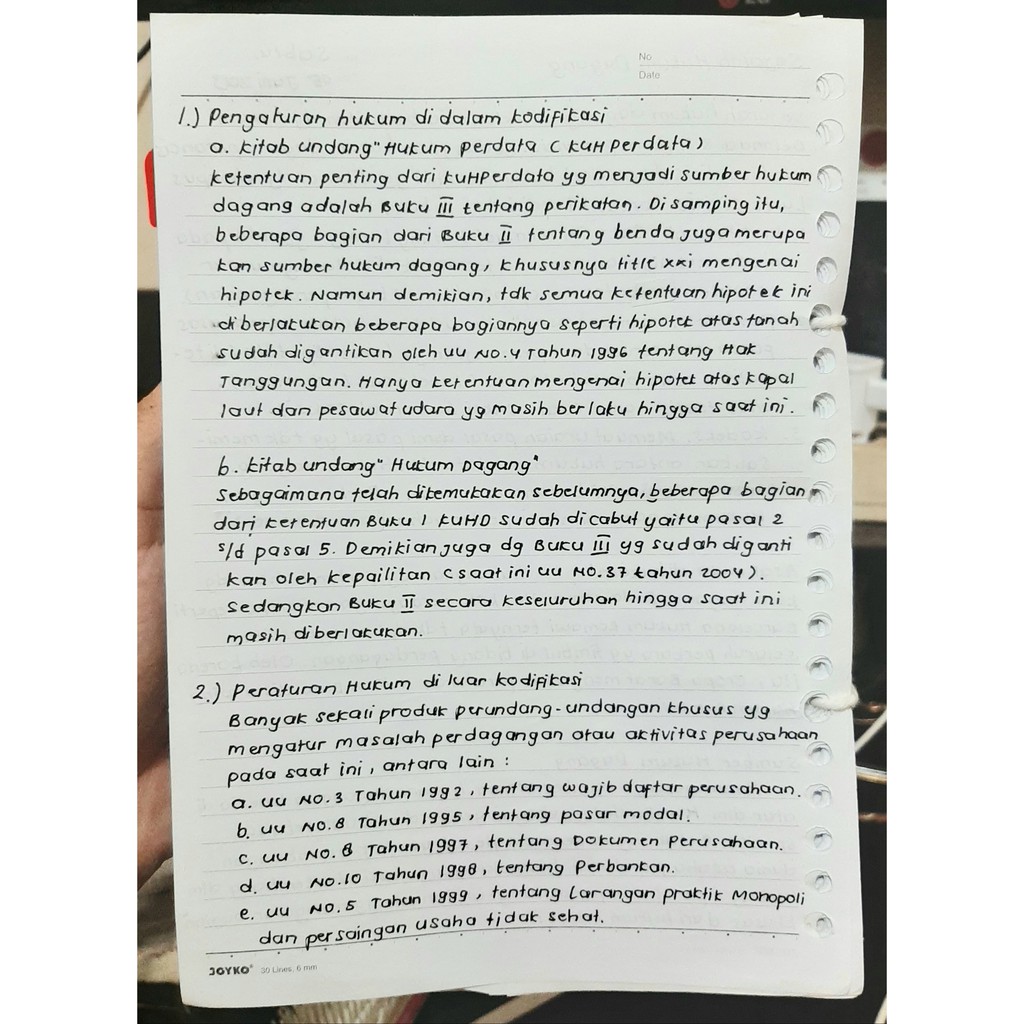 No
Date
1.) Pengaturan hukum di dalam kodifikasi
a. Kitab undang" Hukum perdata ( KUH Perdata )
Ketentuan penting dari KUHPerdata yg menjadi sumber hukum
dagang adalah Buku III tentang perikatan. Di samping itu,
beberapa bagian dari Buku II tentang benda juga merupa
kan sumber hukum dagang, khususnya title xxi mengenai
hipotek. Namun demikian, tdk semua ketentuan hipotek ini
diberlakukan beberapa bagiannya seperti hipotek atas tanah
sudah digantikan oleh uu No.4 Tahun 1996 tentang Hak
Tanggungan. Hanya ketentuan mengenai hipotek atas kapal
laut dan pesawat udara yg masih berlaku hingga saat ini.
b. Kitab undang" Hukum Dagang"
Sebagaimana telah dikemukakan sebelumnya, beberapa bagian
dari ketentuan Buku I KUHD sudah dicabut yaitu pasal 2
s/d pasal 5. Demikian juga dg Buku III yg sudah diganti
kan oleh kepailitan ( saat ini uu No.37 tahun 2004 ).
Sedangkan Buku II secara keseluruhan hingga saat ini
masih diberlakukan.
2.) Peraturan Hukum di luar kodifikasi
Banyak sekali produk perundang-undangan khusus yg
mengatur masalah perdagangan atau aktivitas perusahaan
pada saat ini, antara lain :
a. uu No.3 Tahun 1992, tentang wajib daftar perusahaan.
b. uu No.8 Tahun 1995, tentang pasar modal.
c. uu No.8 Tahun 1997, tentang Dokumen Perusahaan.
d. uu No.10 Tahun 1998, tentang Perbankan.
e. uu No.5 Tahun 1999, tentang Larangan praktik Monopoli
dan persaingan usaha tidak sehat.
JOYKO® 30 Lines, 6 mm